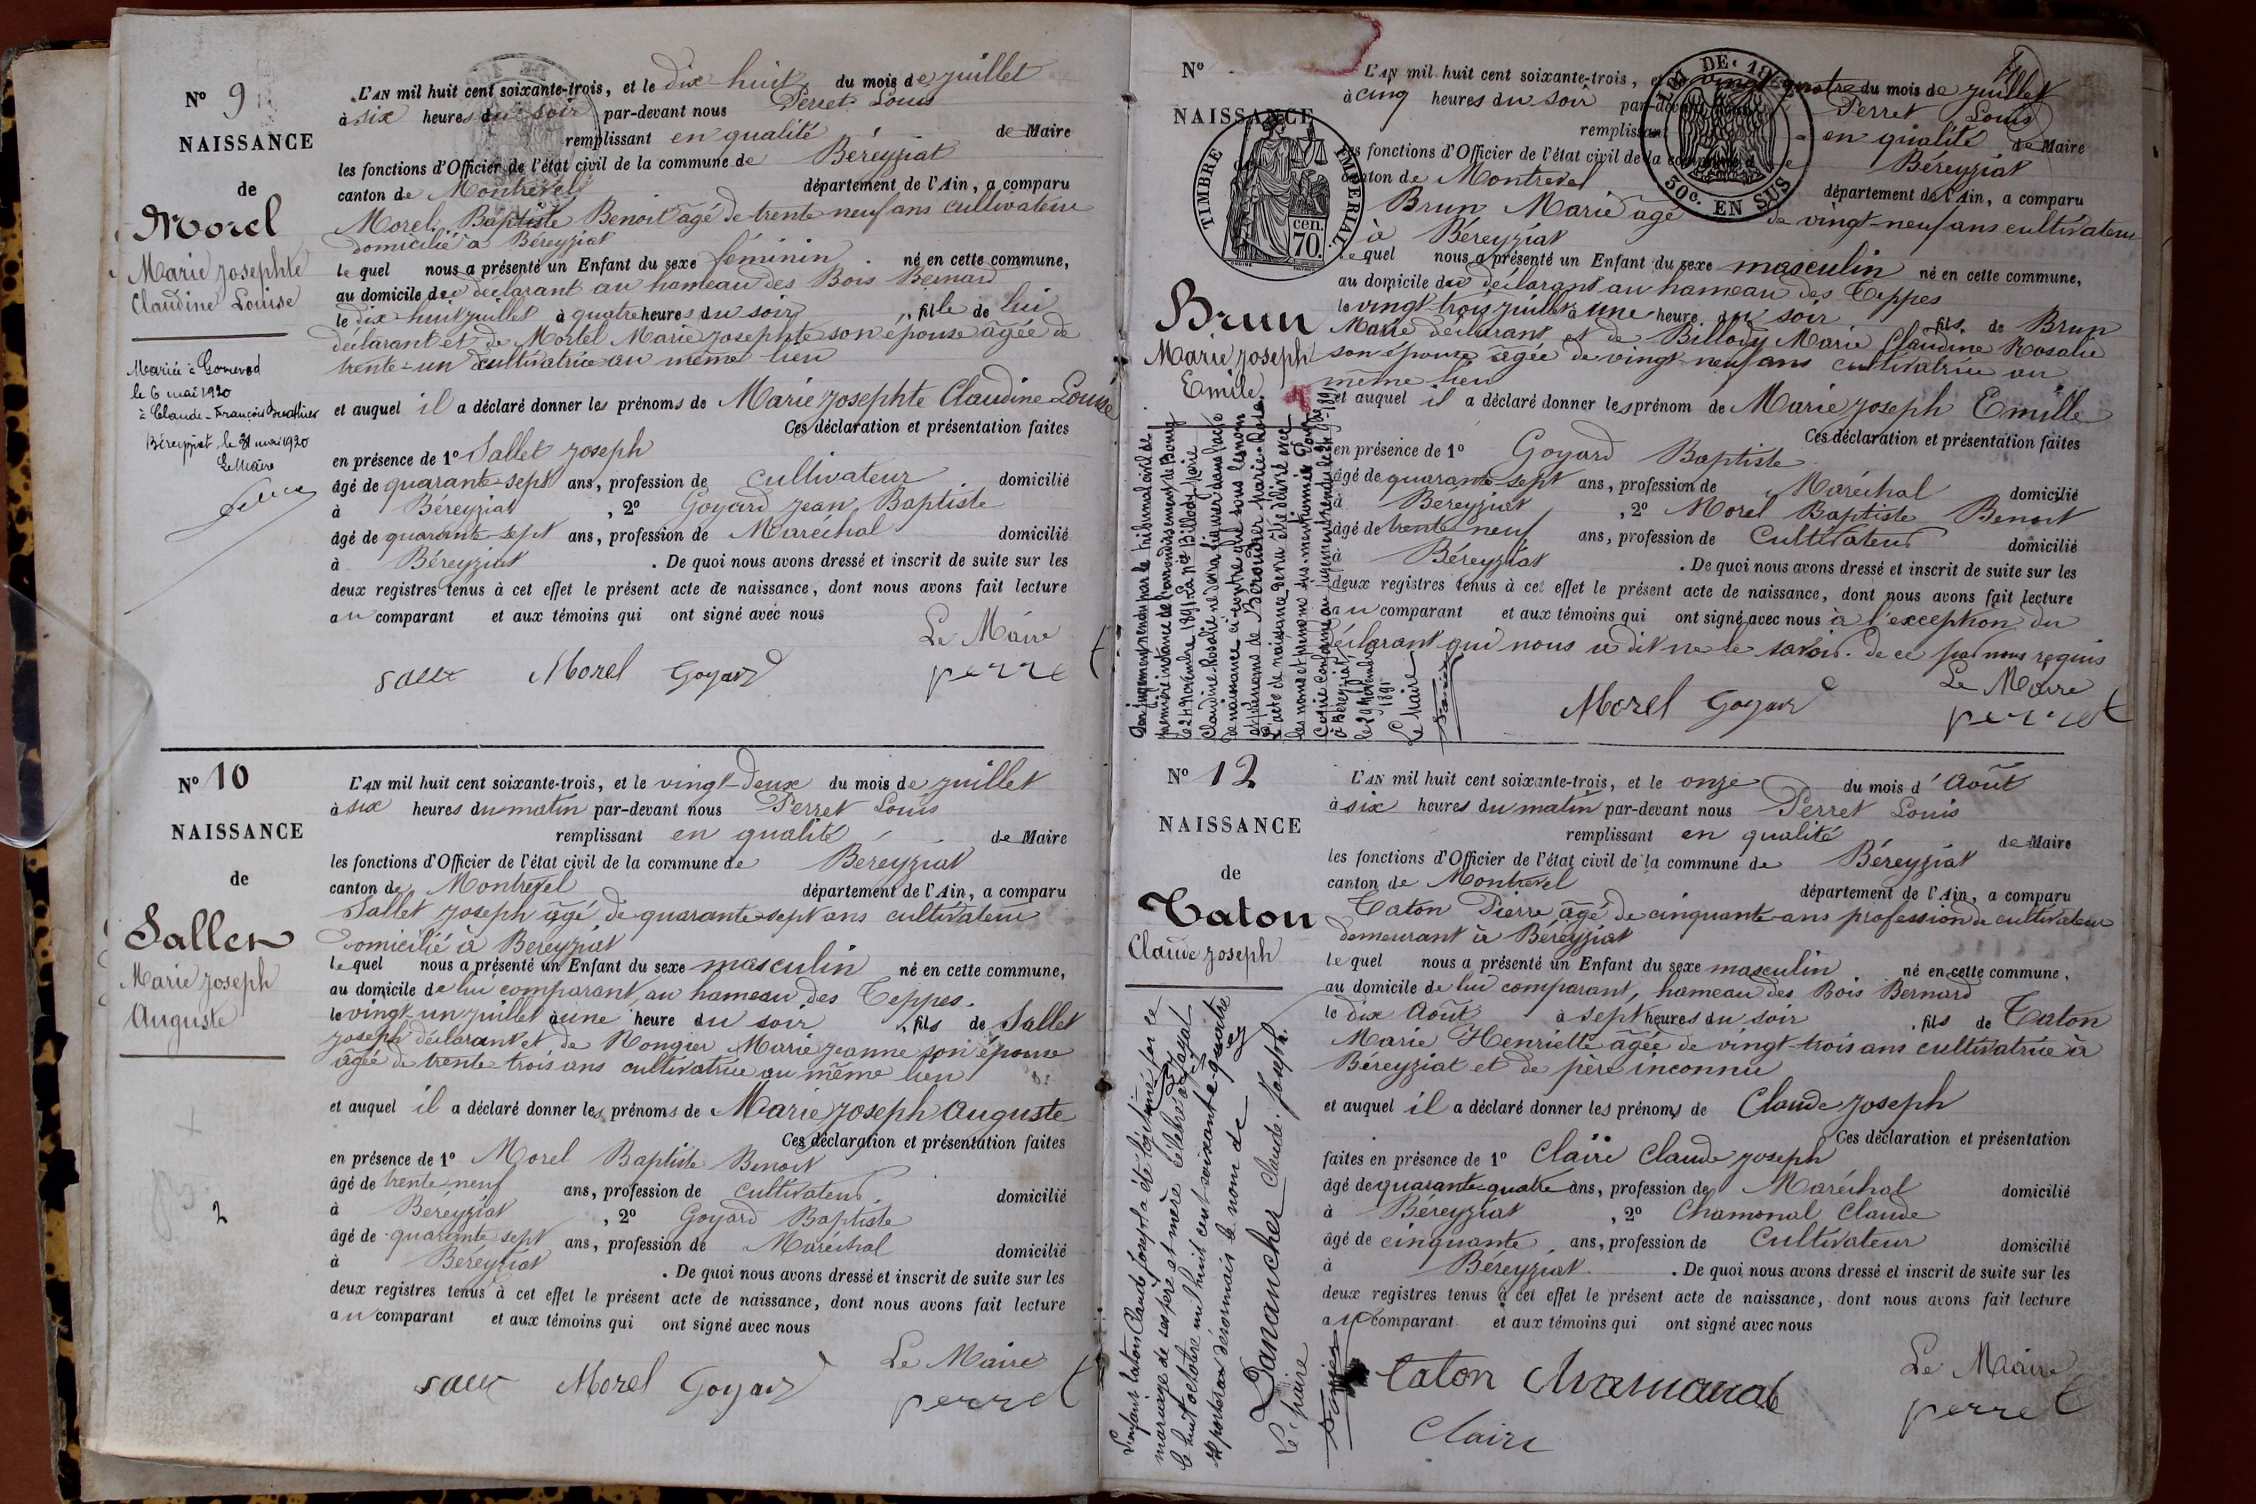 N° 9
NAISSANCE
de
Morel
Marie Josephte
Claudine Louise
Mariée à
le 6 mai 1920
à Claude-François
Béreyziat le 31 mai 1920
Le Maire
L'AN mil huit cent soixante-trois, et le dix huit du mois de juillet
à six heures du soir par-devant nous Perret Louis
remplissant en qualité de Maire
les fonctions d'Officier de l'état civil de la commune de Béreyziat
canton de Montrevel département de l'Ain, a comparu
Morel Baptiste Benoit âgé de trente neuf ans cultivateur
domicilié à Béreyziat
lequel nous a présenté un Enfant du sexe féminin né en cette commune,
au domicile du déclarant au hameau des Bois Bernard
le dix huit juillet à quatre heures du soir, fille de lui
déclarant et de Mortel Marie Josephte son épouse âgée de
trente-un cultivatrice au même lieu
et auquel il a déclaré donner les prénoms de Marie Josephte Claudine Louise
Ces déclaration et présentation faites
en présence de 1° Sallet Joseph
âgé de quarante-sept ans, profession de cultivateur domicilié
à Béreyziat, 2° Goyard Jean Baptiste
âgé de quarante-sept ans, profession de Maréchal domicilié
à Béreyziat. De quoi nous avons dressé et inscrit de suite sur les
deux registres tenus à cet effet le présent acte de naissance, dont nous avons fait lecture
au comparant et aux témoins qui ont signé avec nous
Le Maire
Morel Goyard perret
N° 10
NAISSANCE
de
Sallet
Marie Joseph
Auguste
2
L'AN mil huit cent soixante-trois, et le vingt-deux du mois de juillet
à six heures du matin par-devant nous Perret Louis
remplissant en qualité de Maire
les fonctions d'Officier de l'état civil de la commune de Béreyziat
canton de Montrevel département de l'Ain, a comparu
Sallet Joseph âgé de quarante-sept ans cultivateur
domicilié à Béreyziat
lequel nous a présenté un Enfant du sexe masculin né en cette commune,
au domicile de lui comparant, au hameau des Teppes.
le vingt-un juillet à une heure du soir, fils de Sallet
Joseph déclarant et de Rongier Marie Jeanne son épouse
âgée de trente trois ans cultivatrice au même lieu
et auquel il a déclaré donner les prénoms de Marie Joseph Auguste
Ces déclaration et présentation faites
en présence de 1° Morel Baptiste Benoit
âgé de trente neuf ans, profession de cultivateur domicilié
à Béreyziat, 2° Goyard Baptiste
âgé de quarante sept ans, profession de Maréchal domicilié
à Béreyziat. De quoi nous avons dressé et inscrit de suite sur les
deux registres tenus à cet effet le présent acte de naissance, dont nous avons fait lecture
au comparant et aux témoins qui ont signé avec nous
Le Maire
Morel Goyard perret
N°
NAISSANCE
TIMBRE IMPERIAL
cen. 70.
30c. EN SUS
Brun
Marie Joseph
Emile
Par jugement rendu par le tribunal civil de
première instance de l'arrondissement de Bourg
le 24 Novembre 1891. La née Billody Marie
Claudine Rosalie ne devra figurer dans l'acte
de naissance ci-contre que sous les nom
et prénoms de
l'acte de naissance devra être délivré avec
les noms et prénoms sus-mentionnés.
Copie conforme au jugement rendu le 24 9bre 1891
à Béreyziat,
le 29 Novembre
1891
Le Maire
L'AN mil huit cent soixante-trois, et le vingt quatre du mois de juillet
à cinq heures du soir par-devant nous Perret Louis
remplissant en qualité de Maire
les fonctions d'Officier de l'état civil de la commune de Béreyziat
canton de Montrevel département de l'Ain, a comparu
Brun Marie âgé de vingt-neuf ans cultivateur
à Béreyziat
lequel nous a présenté un Enfant du sexe masculin né en cette commune,
au domicile du déclarant au hameau des Teppes
le vingt-trois juillet à une heure du soir fils de Brun
Marie déclarant et de Billody Marie Claudine Rosalie
son épouse âgée de vingt-neuf ans cultivatrice au
même lieu
et auquel il a déclaré donner les prénom de Marie Joseph Emille
Ces déclaration et présentation faites
en présence de 1° Goyard Baptiste
âgé de quarante-sept ans, profession de Maréchal domicilié
à Béreyziat, 2° Morel Baptiste Benoit
âgé de trente neuf ans, profession de Cultivateur domicilié
à Béreyziat. De quoi nous avons dressé et inscrit de suite sur les
deux registres tenus à cet effet le présent acte de naissance, dont nous avons fait lecture
au comparant et aux témoins qui ont signé avec nous à l'exception du
déclarant qui nous a dit ne le savoir. de ce par nous requis
Le Maire
Morel Goyard perret
N° 12
NAISSANCE
de
Taton
Claude Joseph
L'enfant Taton Claude Joseph a été légitimé par le
mariage de ses père et mère célébré à
le huit octobre mil huit cent soixante-quatre
et portera désormais le nom de
Danancher Claude Joseph.
Le Maire
L'AN mil huit cent soixante-trois, et le onze du mois d'Août
à six heures du matin par-devant nous Perret Louis
remplissant en qualité de Maire
les fonctions d'Officier de l'état civil de la commune de Béreyziat
canton de Montrevel département de l'Ain, a comparu
Taton Pierre âgé de cinquante ans profession de cultivateur
demeurant à Béreyziat
lequel nous a présenté un Enfant du sexe masculin né en cette commune,
au domicile de lui comparant, hameau des Bois Bernard
le dix Août à sept heures du soir, fils de Taton
Marie Henriette âgée de vingt-trois ans cultivatrice à
Béreyziat et de père inconnu
et auquel il a déclaré donner les prénoms de Claude Joseph
Ces déclaration et présentation
faites en présence de 1° Claire Claude Joseph
âgé de quarante-quatre ans, profession de Maréchal domicilié
à Béreyziat, 2° Chamonal Claude
âgé de cinquante ans, profession de Cultivateur domicilié
à Béreyziat. De quoi nous avons dressé et inscrit de suite sur les
deux registres tenus à cet effet le présent acte de naissance, dont nous avons fait lecture
au comparant et aux témoins qui ont signé avec nous
Le Maire
taton Chamonal perret
Claire